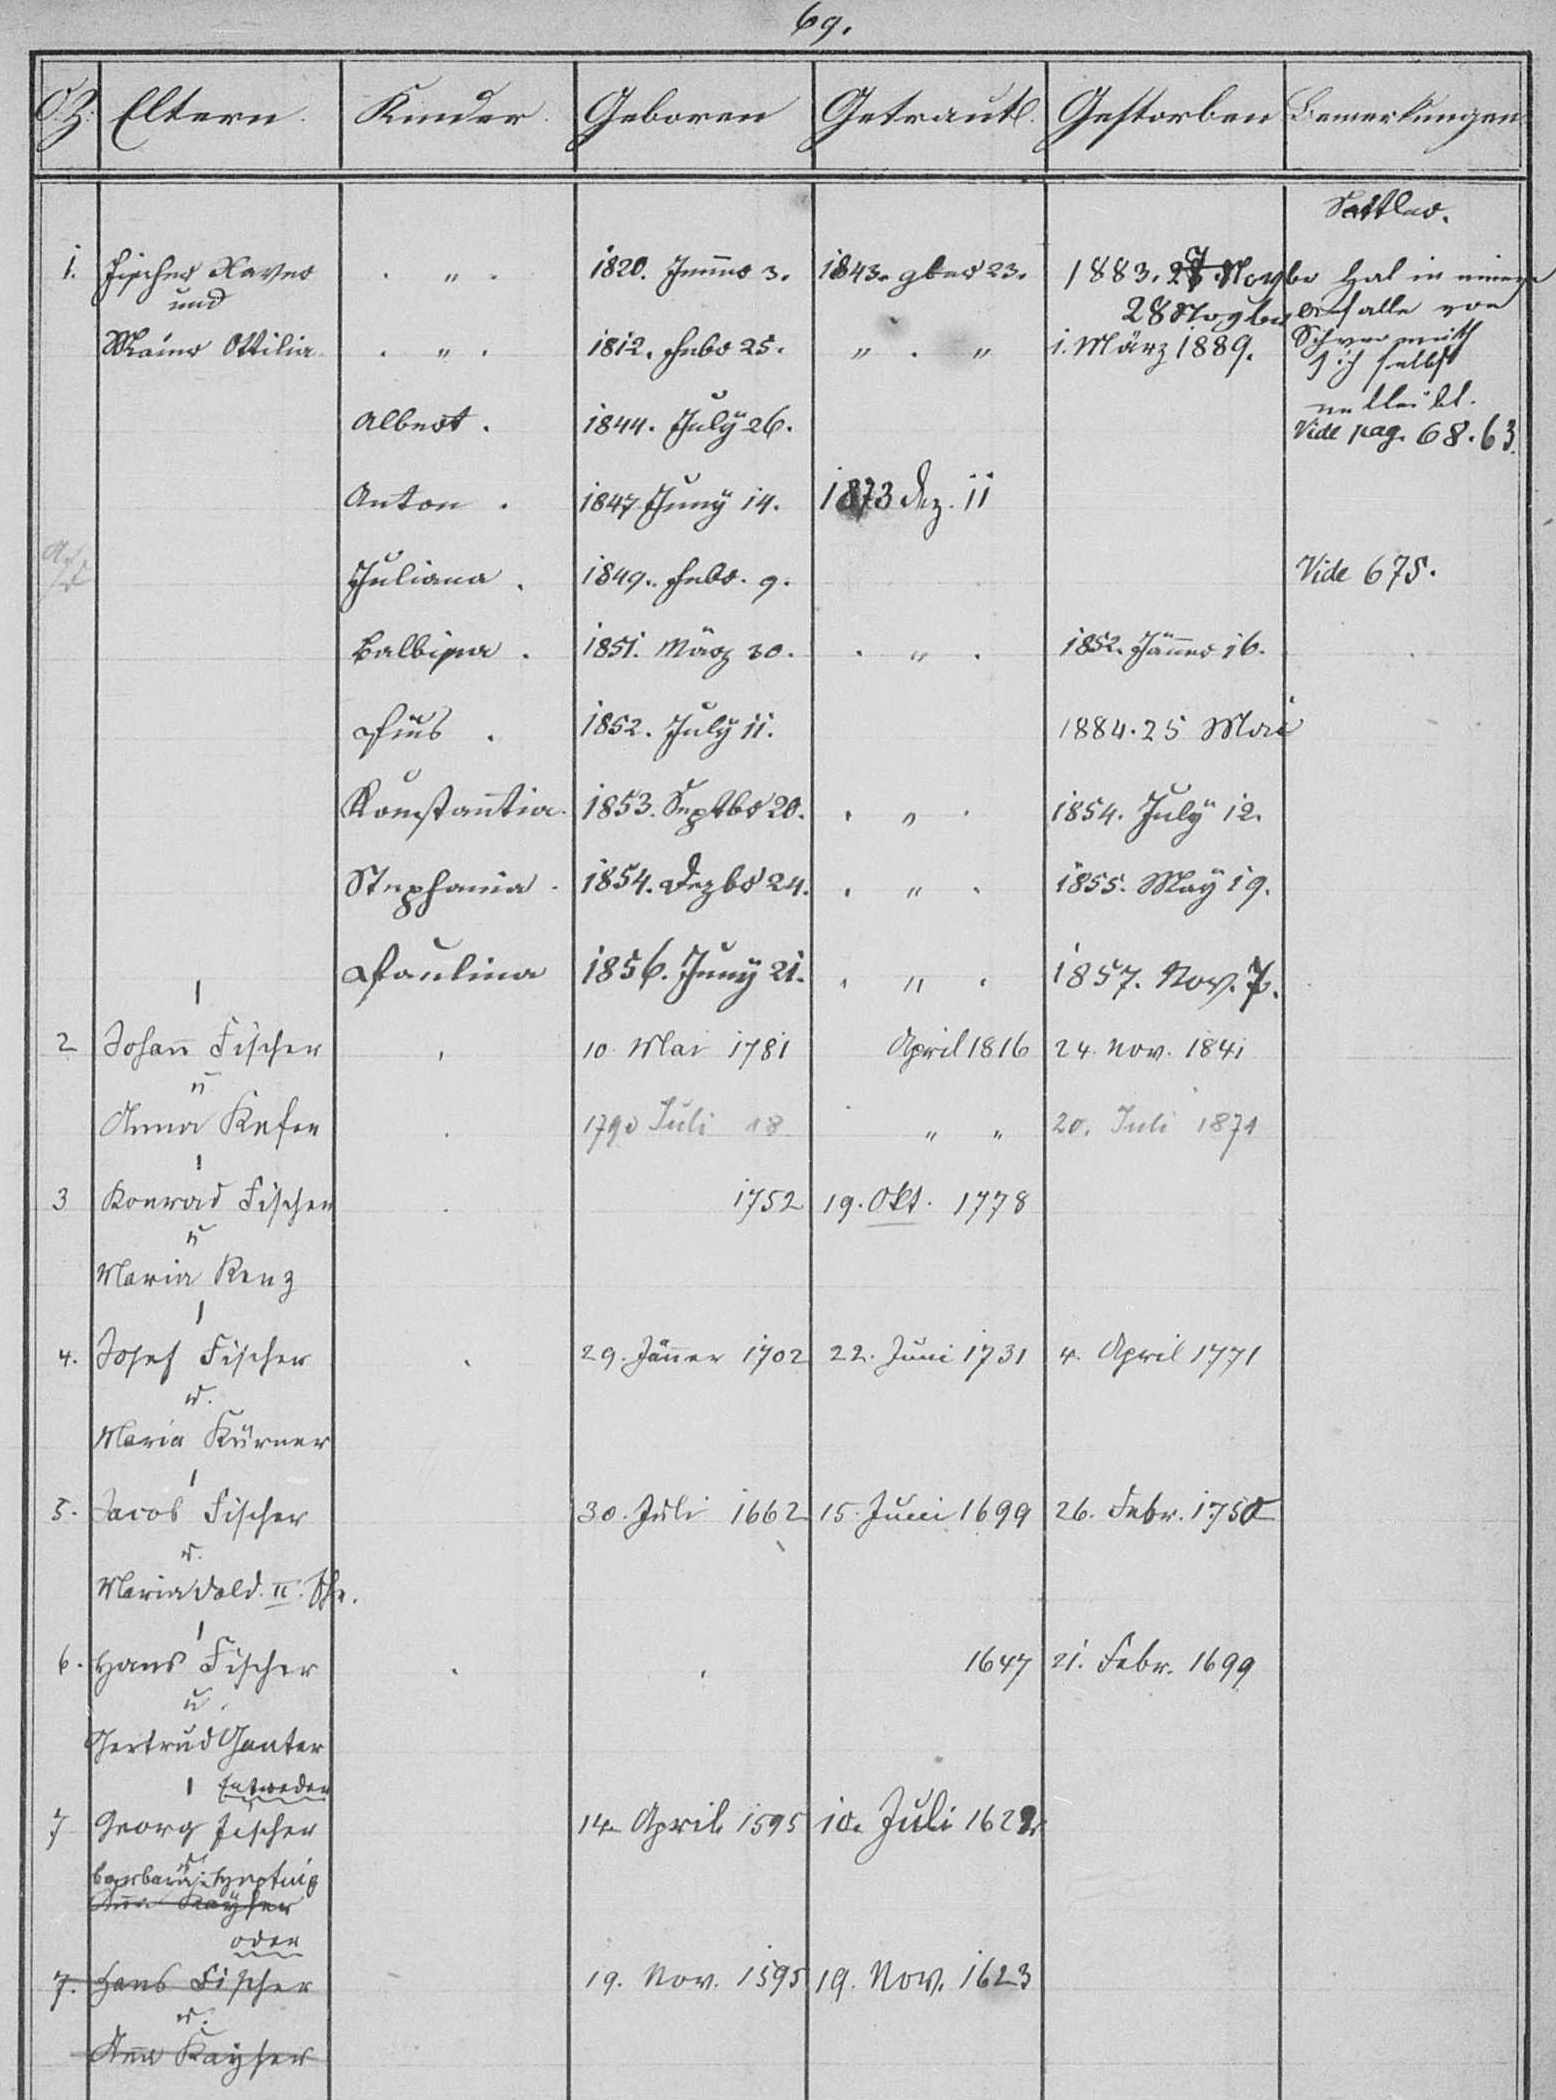 69.
O.Z. Eltern. Kinder. Geboren Getraut. Gestorben Bemerkungen
Sattler.
1. Fischer Xaver . " . 1820. Jenner 3. 1843. 9ber 23. 1883. 27 Novbr Hat in einem
und 28 Novbr Anfalle von
Maier Ottilia . " . 1812. Febr 25. " . " 1. März 1889. Schwermuth
sich selbst
entleibt.
Albert . 1844. July 26. Vide pag. 68. 63.
Anton . 1847 Juny 14. 1873 Dez. 11
Juliana . 1849. Febr. 9. Vide 675.
Balbina . 1851. März 30. . " . 1852. Jänner 16.
Pius . 1852. July 11. 1884. 25 Mai
Konstantia. 1853. Septbr 20. . " . 1854. July 12.
Stephania . 1854. Dezbr 24. . " . 1855. May 19.
Paulina 1856. Juny 21. . " . 1857. Nov. 7.
2 Johann Fischer . 10 Mai 1781 April 1816 24. Nov. 1841
u
Anna . 1790 Juli 18 " " 20. Juli 1871
3 Konrad Fischer . 1752 19. Okt. 1778
u
Maria Renz
4. Josef Fischer . 29. Jänner 1702 22. Juni 1731 4. April 1771
u.
Maria Kürner
5. Jacob Fischer 30. Juli 1662 15. Juni 1699 26. Febr. 1750
u.
Maria Dold. II. Ehe.
6. Hans Fischer . . 1647 21. Febr. 1699
u.
Gertrud Ganter
Entweder
7 Georg Fischer 14. April 1595 10. Juli 1622.
u.
Barbara
Anna Kayser
oder
7. Hans Fischer 19. Nov. 1595 19. Nov. 1623
u.
Anna Kayser